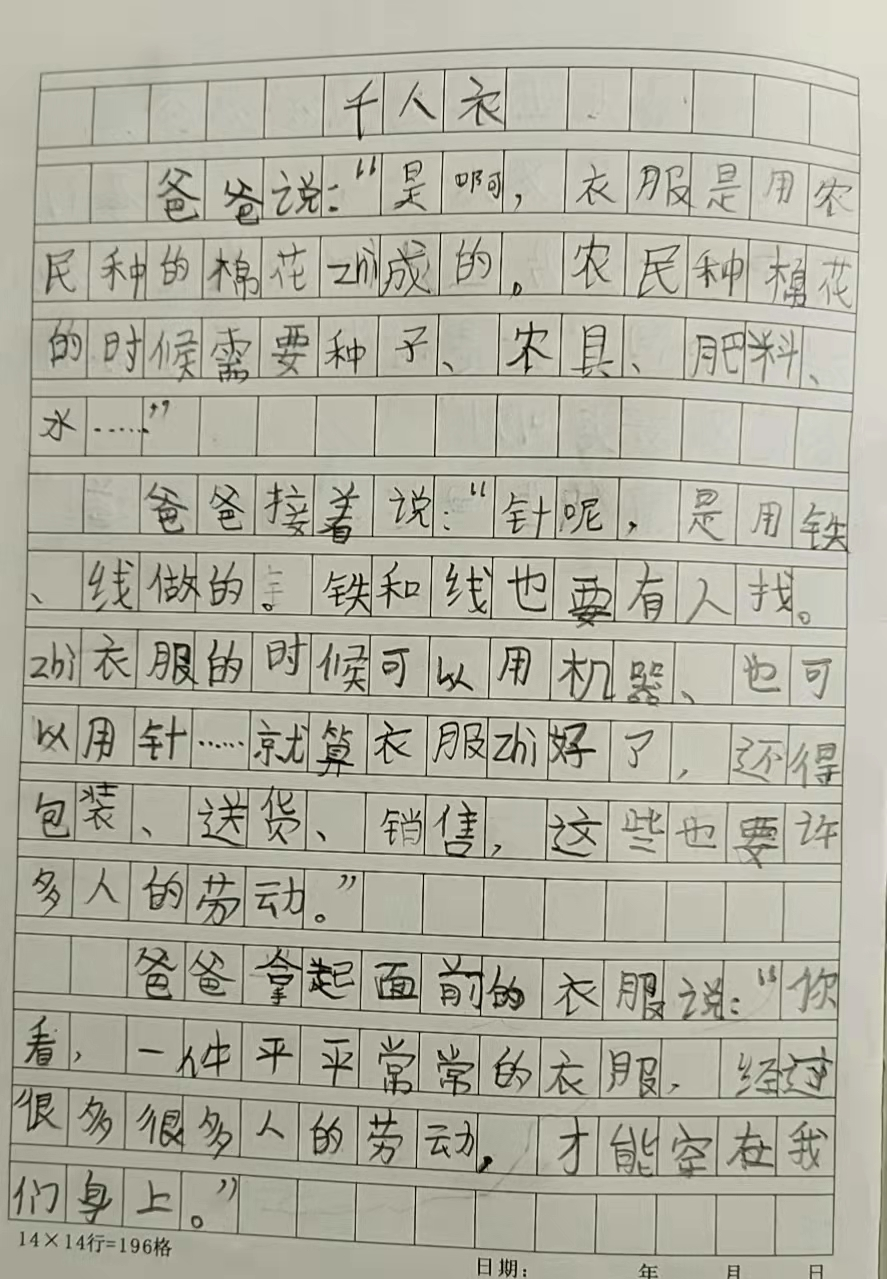 千人衣
爸爸说：“是啊，衣服是用农
民种的棉花zhi成的。农民种棉花
的时候需要种子、农具、肥料、
水……”
爸爸接着说：“针呢，是用铁
、线做的。铁和线也要有人找。
zhi衣服的时候可以用机器、也可
以用针……就算衣服zhi好了，还得
包装、送货、销售，这些也要许
多人的劳动。”
爸爸拿起面前的衣服说：“你
看，一件平平常常的衣服，经过
很多很多人的劳动，才能穿在我
们身上。”
14×14行=196格
日期： 年 月 日